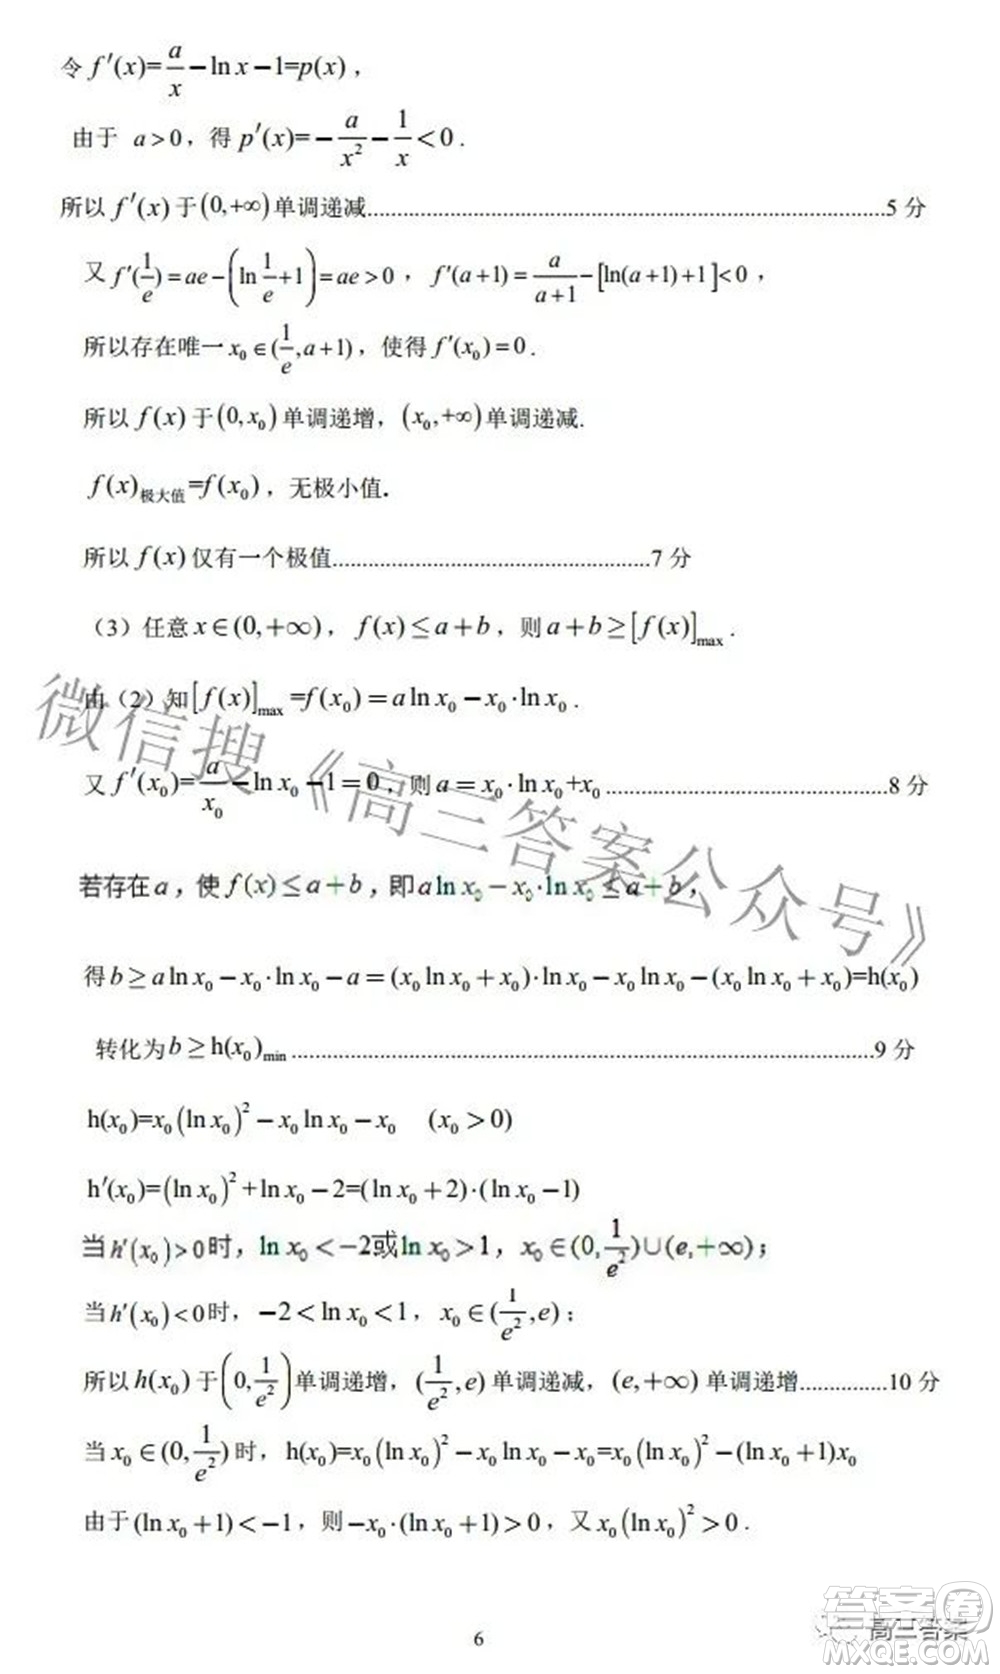 令 f′(x)=a/x−ln x−1=p(x)，
由于 a>0，得 p′(x)=−a/x²−1/x<0．
所以 f′(x) 于 (0,+∞) 单调递减......................................................................................5 分
又 f′(1/e)=ae−(ln 1/e+1)=ae>0，f′(a+1)=a/(a+1)−[ln(a+1)+1]<0，
所以存在唯一 x₀∈(1/e,a+1)，使得 f′(x₀)=0．
所以 f(x) 于 (0,x₀) 单调递增，(x₀,+∞) 单调递减.
f(x)极大值=f(x₀)，无极小值.
所以 f(x) 仅有一个极值.....................................................7 分
（3）任意 x∈(0,+∞)，f(x)≤a+b，则 a+b≥[f(x)]max．
由（2）知[f(x)]max=f(x₀)=a ln x₀−x₀·ln x₀．
又 f′(x₀)=a/x₀−ln x₀−1=0，则 a=x₀·ln x₀+x₀...............................................8 分
若存在 a，使 f(x)≤a+b，即 a ln x₀−x₀·ln x₀≤a+b，
得 b≥a ln x₀−x₀·ln x₀−a=(x₀ ln x₀+x₀)·ln x₀−x₀ ln x₀−(x₀ ln x₀+x₀)=h(x₀)
转化为 b≥h(x₀)min.................................................................................................9 分
h(x₀)=x₀(ln x₀)²−x₀ ln x₀−x₀ (x₀>0)
h′(x₀)=(ln x₀)²+ln x₀−2=(ln x₀+2)·(ln x₀−1)
当 h′(x₀)>0 时，ln x₀<−2或ln x₀>1，x₀∈(0,1/e²)∪(e,+∞)；
当 h′(x₀)<0 时，−2<ln x₀<1，x₀∈(1/e²,e)；
所以 h(x₀) 于 (0,1/e²) 单调递增，(1/e²,e) 单调递减，(e,+∞) 单调递增...............10 分
当 x₀∈(0,1/e²) 时，h(x₀)=x₀(ln x₀)²−x₀ ln x₀−x₀=x₀(ln x₀)²−(ln x₀+1)x₀
由于 (ln x₀+1)<−1，则 −x₀·(ln x₀+1)>0，又 x₀(ln x₀)²>0．
6
微信搜《高三答案公众号》
答案卷
高三答案